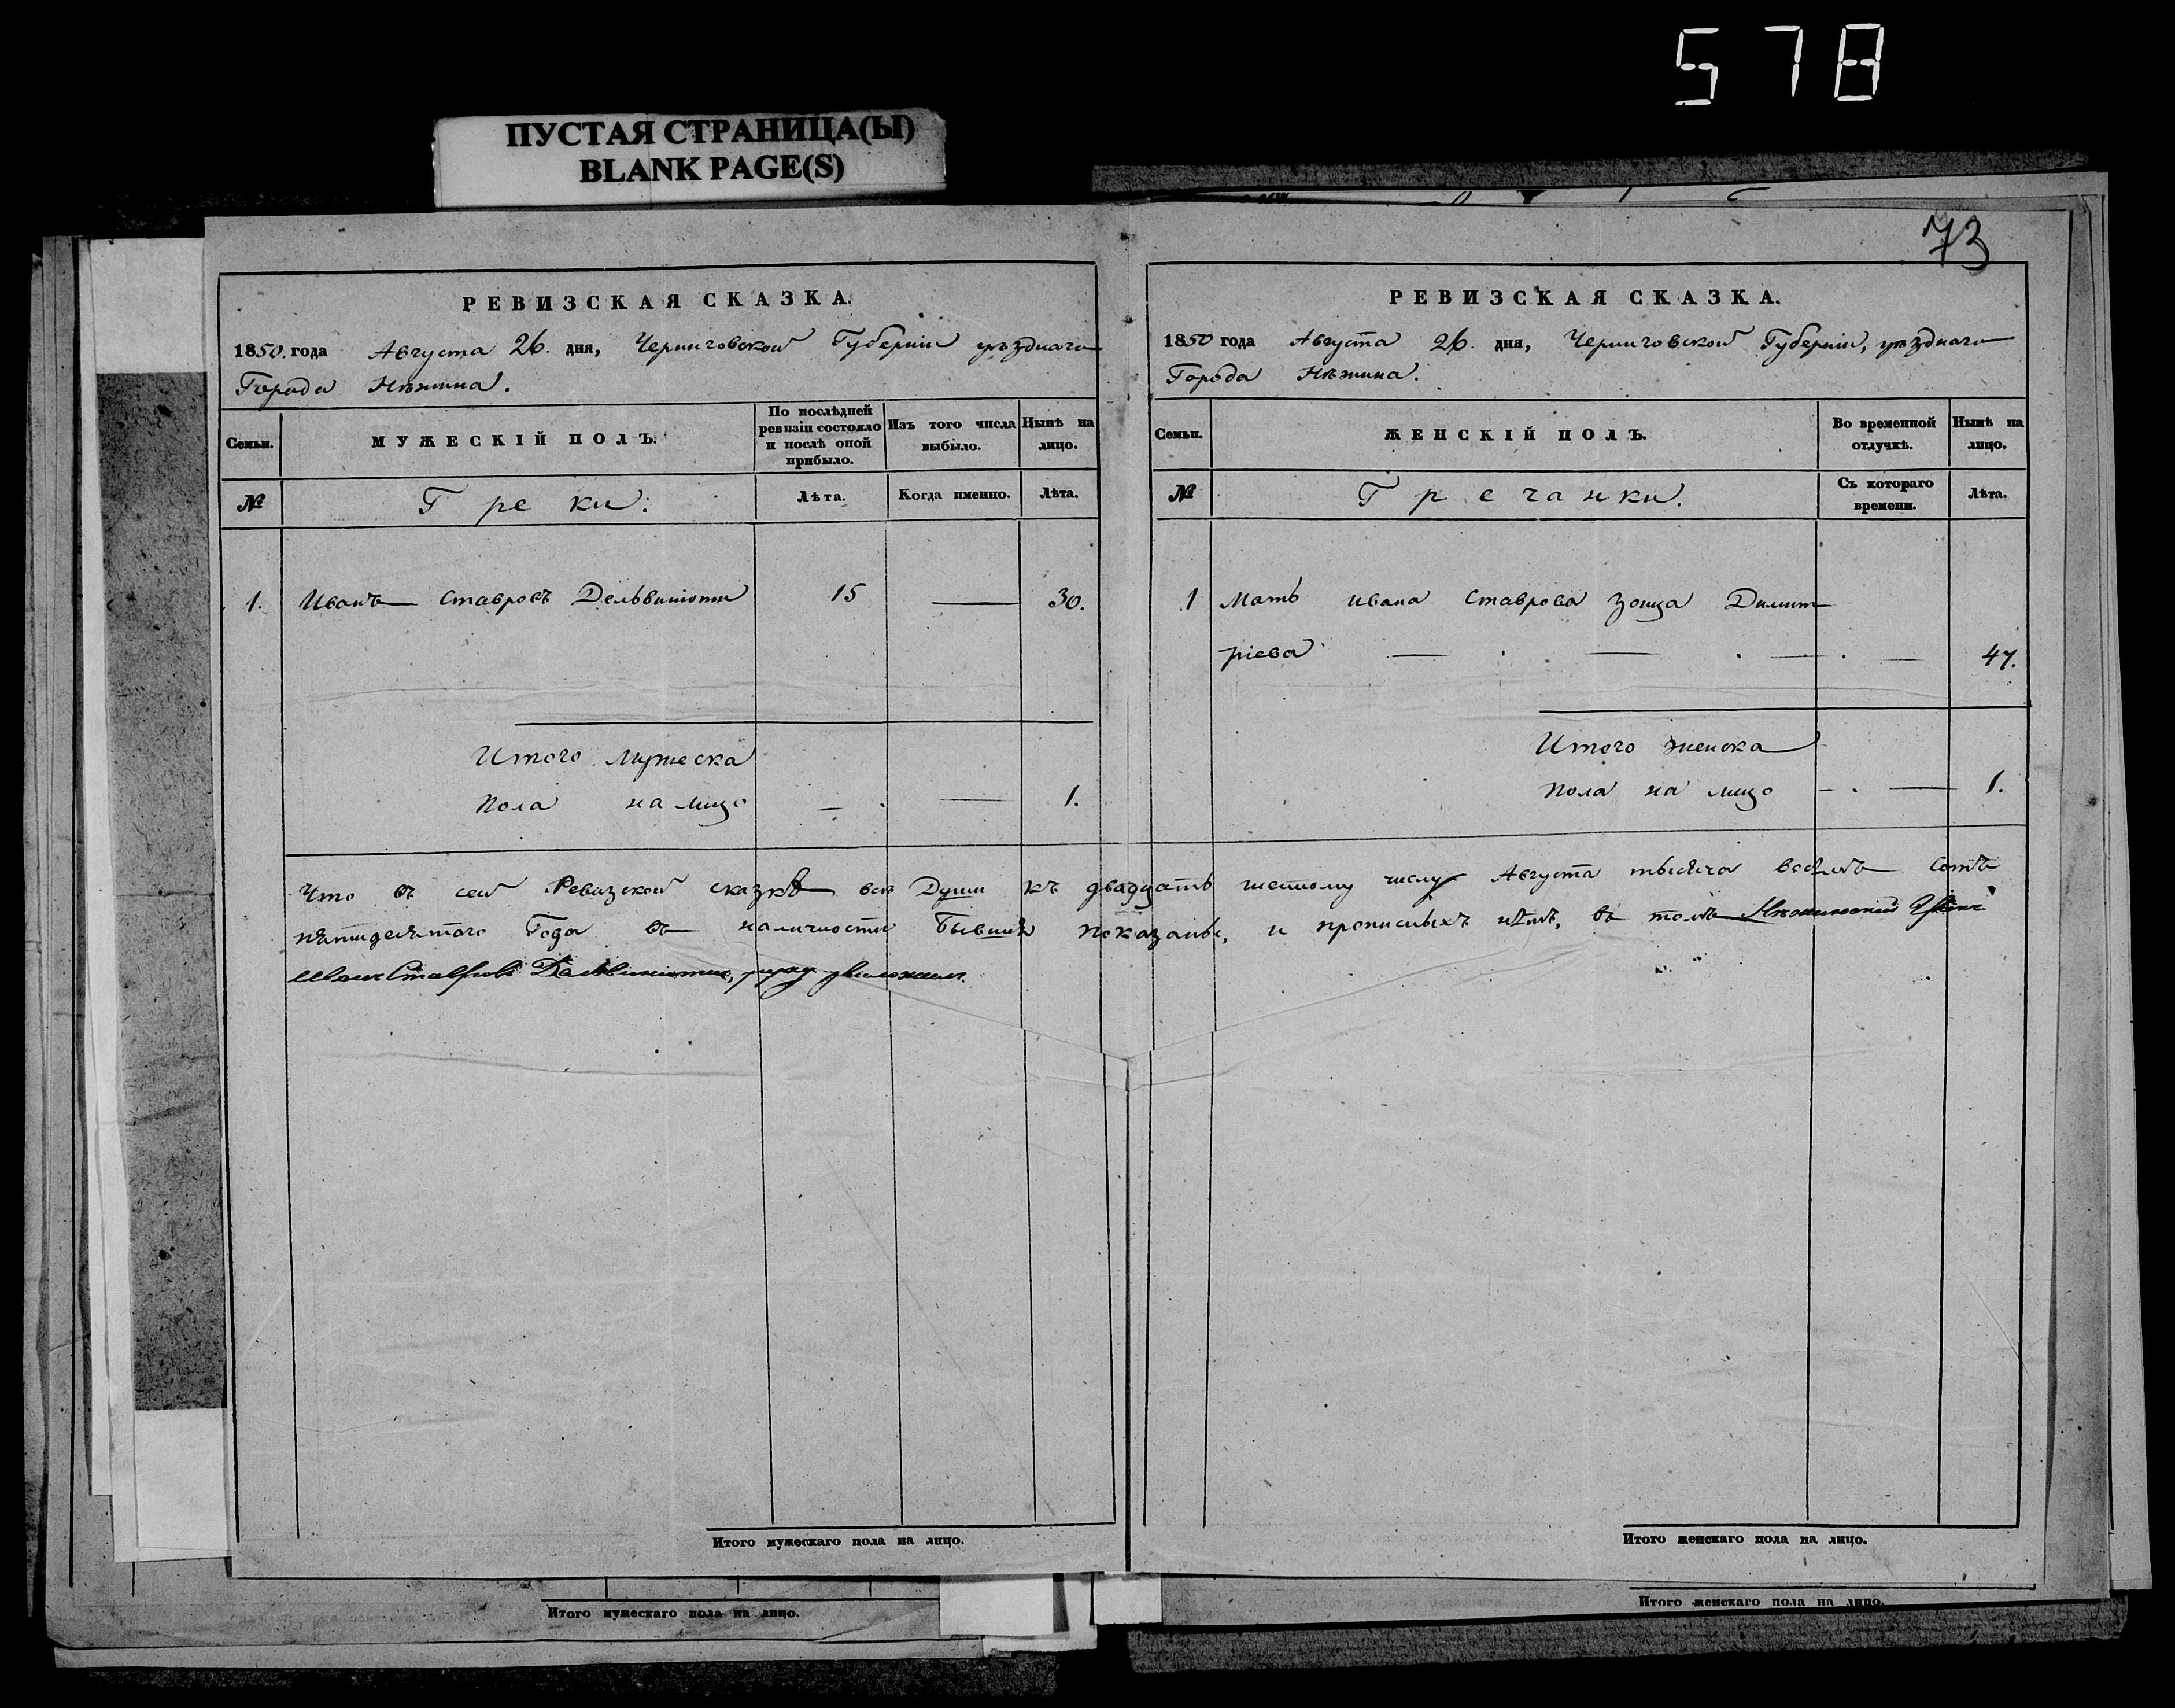 578
ПУСТАЯ СТРАНИЦА(Ы)
BLANK PAGE(S)
73
РЕВИЗСКАЯ СКАЗКА.
1850. года Августа 26. дня, Черниговской Губернии уѣзднаго
Города Нѣжина.
Семьи.
МУЖЕСКІЙ ПОЛЪ.
По послѣдней ревизіи состояло и послѣ оной прибыло.
Изъ того числа выбыло.
Нынѣ на лицо.
№
Греки.
Лѣта.
Когда именно.
Лѣта.
1. Иванъ Ставровъ Дельвиніоти 15 — 30.
Итого мужеска
пола на лицо — . — 1.
РЕВИЗСКАЯ СКАЗКА.
1850 года Августа 26. дня, Черниговской Губерніи, уѣзднаго
Города Нѣжина.
Семьи.
ЖЕНСКІЙ ПОЛЪ.
Во временной отлучкѣ.
Нынѣ на лицо.
№
Гречанки.
Съ котораго времени.
Лѣта.
1 Мать Ивана Ставрова Зоица Димит
ріева — . — . — . — 47.
Итого женска
пола на лицо — . — 1.
Что въ сей Ревизской сказкѣ всѣ Души къ двадцать шестому числу Августа тысяча восемь сотъ
пятидесятого Года въ наличности Бывшія показаны, и прописныхъ нѣтъ, въ томъ Нѣжинский Грекъ
Иванъ Ставровъ Дельвиніоти, руку приложилъ.
Итого мужескаго пола на лицо.
Итого женскаго пола на лицо.
Итого мужескаго пола на лицо.
Итого женскаго пола на лицо.